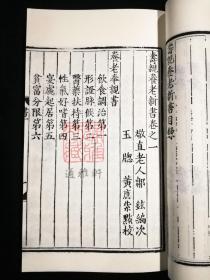 壽親養老新書目錄
壽親養老新書卷之一
敬直老人鄒鉉編次
玉牕黃應紫點校
養老奉親書
飲食調治第一
形證脉候第二
醫藥扶持第三
性氣好嗜第四
宴處起居第五
貧富分限第六